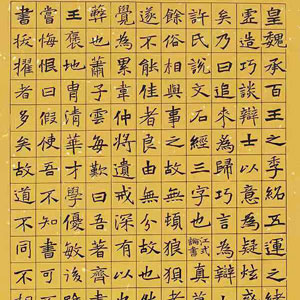 皇魏承百王之季紹五運之緒
虛造巧談辯士以意為疑炫惑
矣乃曰追來為歸巧言為辯小
許氏說文石經三字也江式論書真草
餘俗相與事之故無頓狼狽者
遂不能佳者良由無分故也然
覺為累韋仲將遺戒深有以也
蔽也蕭子雲每歎曰吾著齊書
王褒地胄清華才學優敏後雖
嘗悔恨曰假使吾不知書可不
書拔擢者多矣故道不同不可